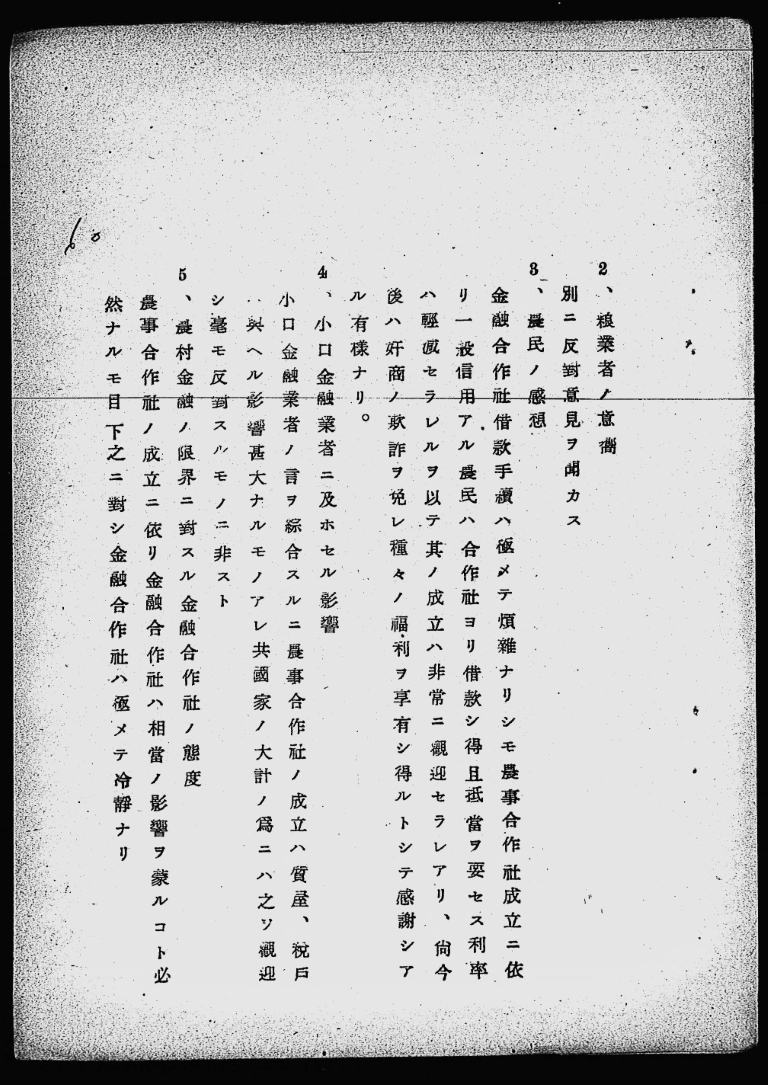 2、粮業者ノ意嚮
別ニ反對意見ヲ聞カス
3、農民ノ感想
金融合作社借款手續ハ極メテ煩雜ナリシモ農事合作社成立ニ依
リ一般信用アル農民ハ合作社ヨリ借款シ得且抵當ヲ要セス利率
ハ輕減セラレルヲ以テ其ノ成立ハ非常ニ觀迎セラレアリ、尙今
後ハ奸商ノ欺詐ヲ免レ種々ノ福利ヲ享有シ得ルトシテ感謝シア
ル有樣ナリ。
4、小口金融業者ニ及ホセル影響
小口金融業者ノ言ヲ綜合スルニ農事合作社ノ成立ハ質屋、稅戶
ハ與ヘル影響甚大ナルモノアレ共國家ノ大計ノ爲ニハ之ソ觀迎
シ毫モ反對スルモノニ非スト
5、農村金融ノ限界ニ對スル金融合作社ノ態度
農事合作社ノ成立ニ依リ金融合作社ハ相當ノ影響ヲ蒙ルコト必
然ナルモ目下之ニ對シ金融合作社ハ極メテ冷靜ナリ
60